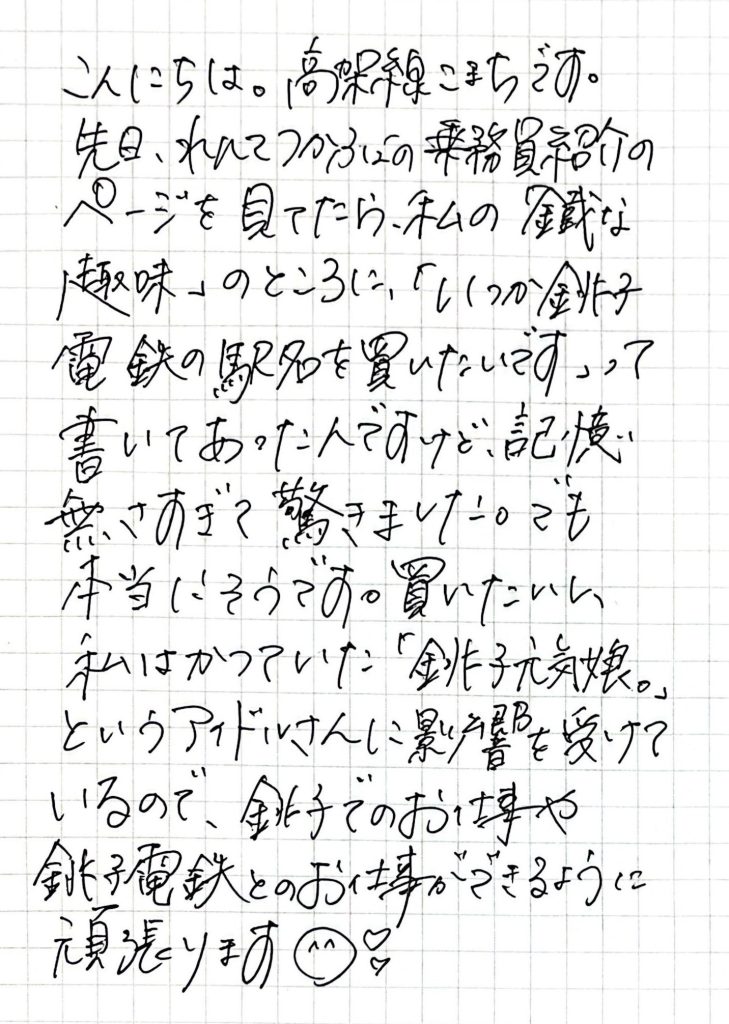 こんにちは。高架線こまちです。
先日、れんてつかぶにの乗務員紹介の
ページを見てたら、私の「鐵な
趣味」のところに、「いつか銚子
電鉄の駅名を買いたいです」って
書いてあったんですけど、記憶
無さすぎて驚きました。でも
本当にそうです。買いたいし、
私はかつていた「銚子元気娘。」
というアイドルさんに影響を受けて
いるので、銚子でのお仕事や
銚子電鉄とのお仕事ができるように
頑張ります